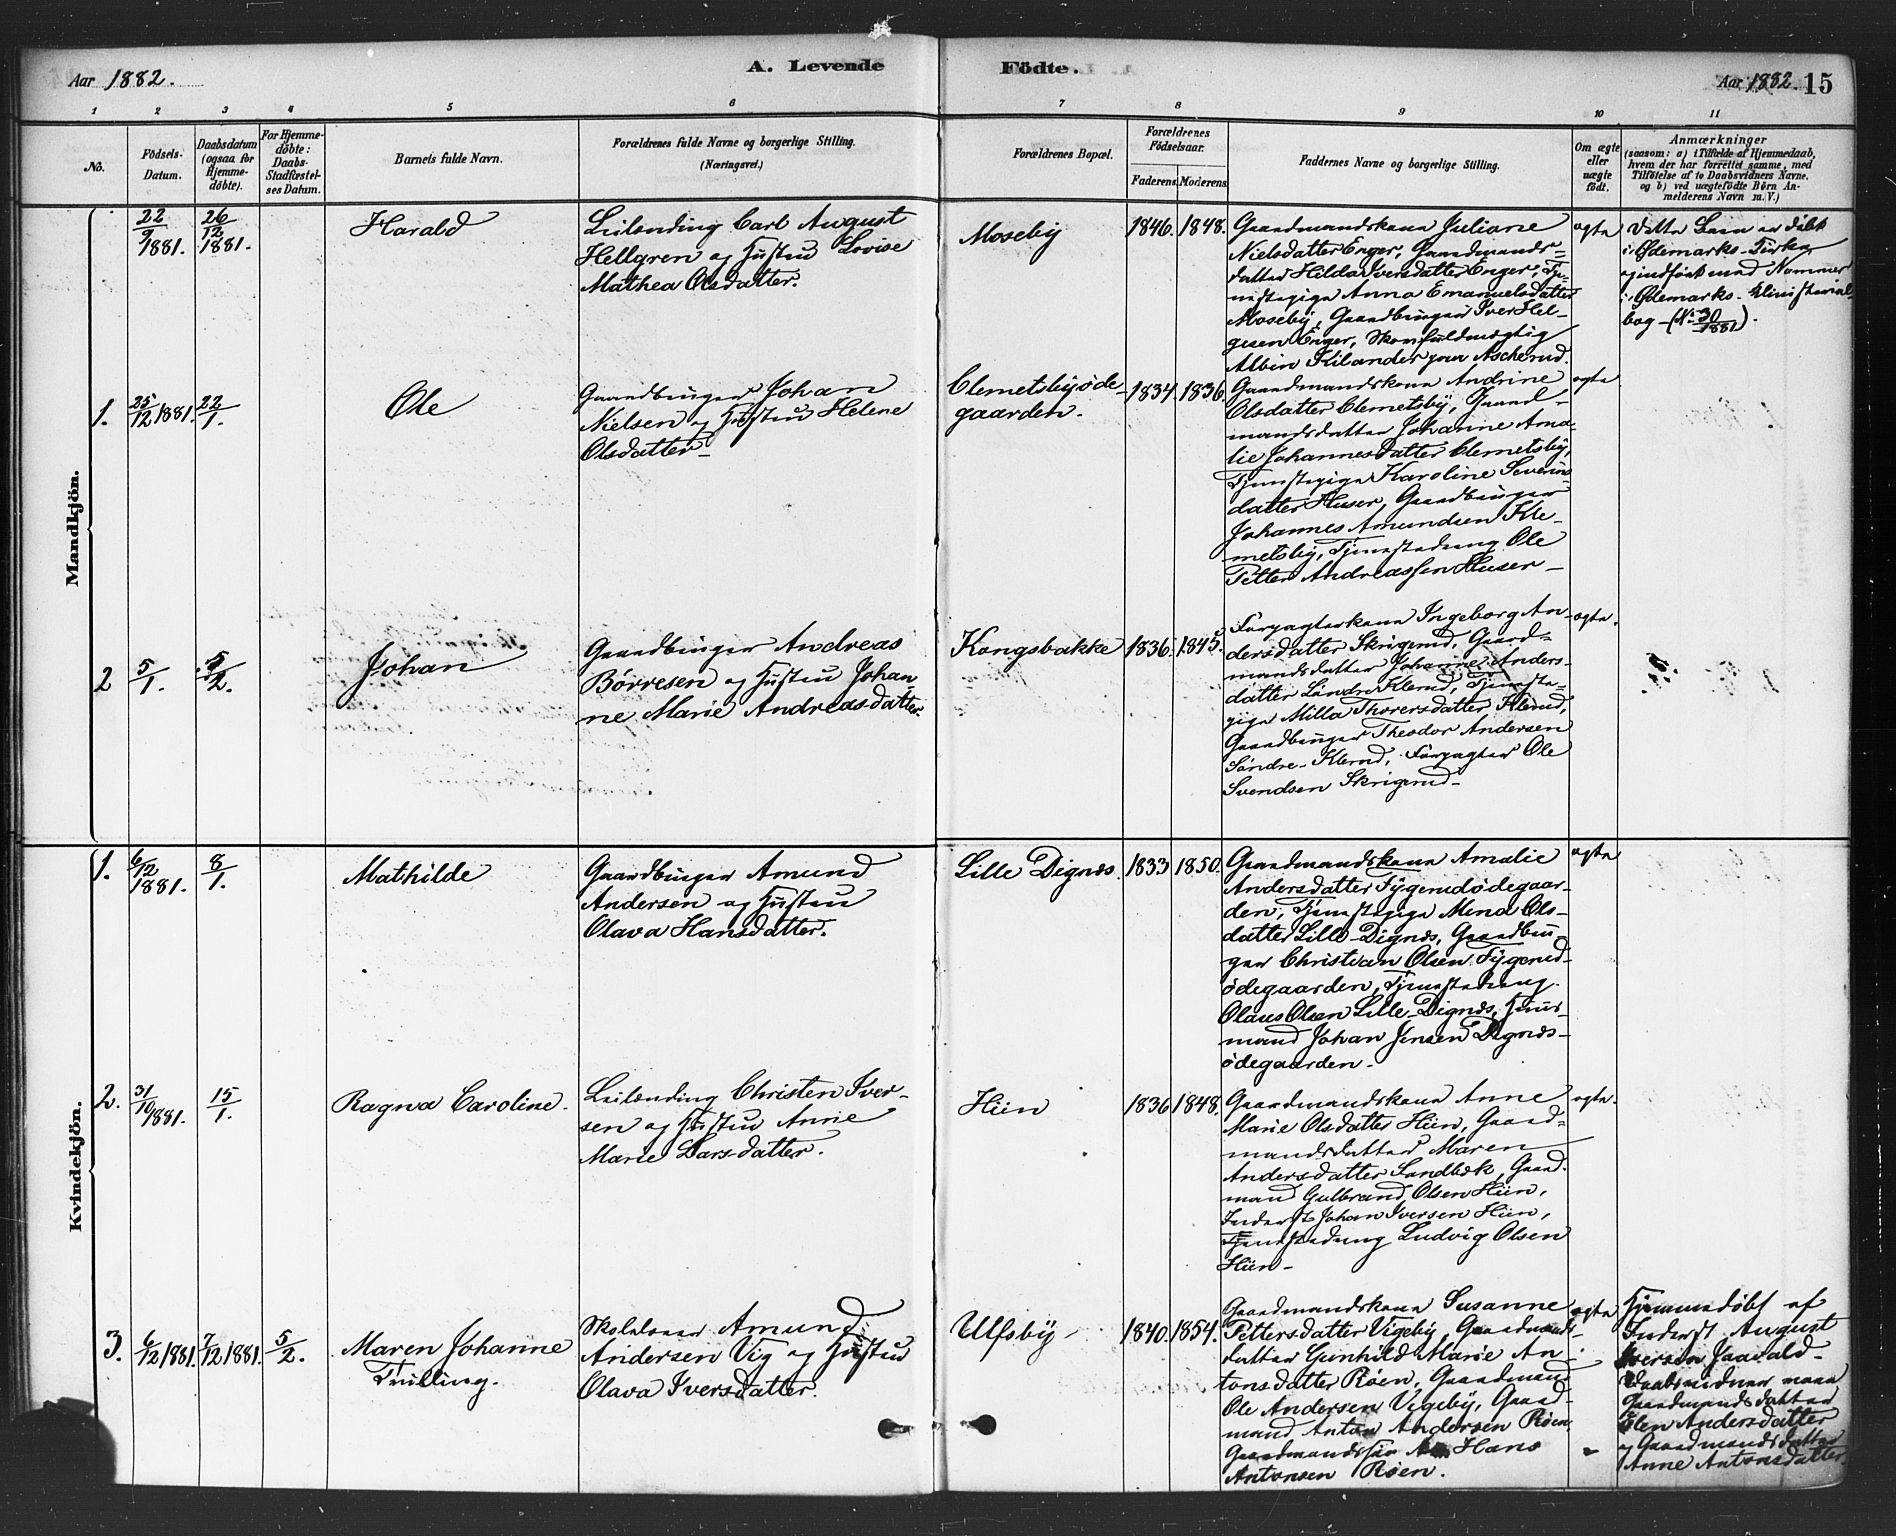 Aar 1882.
A. Levende
Födte.
Aar 1882. 15
1 2 3 4 5 6 7 8 9 10 11
No.
Födsels-
Datum.
Daabsdatum
(ogsaa for
Hjemme-
döbte).
For Hjemme-
döbte:
Daabs-
Stadfæstel-
ses Datum.
Barnets fulde Navn.
Forældrenes fulde Navne og borgerlige Stilling.
(Næringsvei.)
Forældrenes Bopæl.
Forældrenes
Födselsaar.
Faderens. Moderens.
Faddernes Navne og borgerlige Stilling.
Om ægte
eller
uægte
födt.
Anmærkninger
(saasom: a) i Tilfælde af Hjemmedaab,
hvem der har forrettet samme, med
Tilföielse af to Daabsvidners Navne.
og b) ved uægtefödte Börn An-
melderens Navn m. V.)
Mandkjön.
22/9 1881.
26/12 1881.
Harald
Leilænding Carl August
Hellgren og Hustru Lovise
Mathea Olsdatter.
Moseby
1846. 1848.
Gaardmandskone Juliane
Nielsdatter Enger, Gaardmands-
datter Hilda Iversdatter Enger, Tje-
nestepige Anna Emanuelsdatter
Moseby, Gaardbruger Iver Hel-
gesen Enger, Skomfuldmægtig
Albin Kilander Ascherud.
ægte
Dette Barn er döbt
i Ødemarks Kirke
og indfört med Nummer
i Ødemarks Ministerial-
bog - (No 30/1881).
1.
25/12 1881.
22/1.
Ole
Gaardbruger Johan
Nielsen og Hustru Helene
Olsdatter
Clemetsbyöde-
gaarden.
1834. 1836.
Gaardmandskone Andrine
Olsdatter Clemetsby, Gaard-
mandsdatter Johanne Ama-
lie Johannesdatter Clemetsby,
Tjenestepige Karoline Severins-
datter Huser, Gaardbruger
Johannes Amundsen Kle-
metsby, Tjenestedreng Ole
Petter Andreassen Huser
ægte
2
5/1.
5/2.
Johan
Gaardbruger Andreas
Börresen og Hustru Johan
ne Marie Andreasdatter.
Kongsbakke
1836. 1845.
Forpagterkone Ingeborg An-
dersdatter Skrigerud, Gaard-
mandsdatter Johanne Anders-
datter Söndre Klerud, Tjeneste-
pige Milla Thorersdatter Klerud,
Gaardbruger Theodor Andersen
Söndre-Klerud, Forpagter Ole
Svendsen Skrigerud
ægte.
Kvindekjön.
1.
6/12 1881.
8/1.
Mathilde
Gaardbruger Amund
Andersen og Hustru
Olava Hansdatter.
Lille Dignæs.
1833 1850.
Gaardmandskone Amalie
Andersdatter Tygerudödegaar-
den, Tjenestepige Mena Ols-
datter Lille-Dignæs, Gaardbru-
ger Christian Olsen Tygerud-
ödegaarden, Tjenestedreng
Olaus Olsen Lille-Dignæs, Huus-
mand Johan Jensen Dignæs-
ödegaarden.
ægte
2.
31/10 1881.
15/1.
Ragna Caroline.
Leilænding Christen Iver-
sen og Hustru Anne
Marie Larsdatter.
Hiin
1836 1848.
Gaardmandskone Anne
Marie Olsdatter Hiin, Gaard-
mandsdatter Maren
Andersdatter Sandbæk, Gaard-
mand Gulbrand Olsen Hiin,
Inderst Johan Iversen Hiin,
Tjenestedreng Ludvig Olsen
Hiin
ægte.
3.
6/12 1881.
7/12 1881.
5/2.
Maren Johanne
Tvilling.
Skolelærer Amund
Andersen Vig og Hustru
Olava Iversdatter.
Ulfsby
1840. 1854.
Gaardmandskone Susanne
Pettersdatter Vigeby, Gaardmands-
datter Gunhild Marie An-
tonsdatter Röen, Gaardmand
Ole Andersen Vigeby, Gaard-
mand Anton Andersen Röen,
Gaardmandssön Hans
Antonsen Röen.
ægte
Hjemmedöbt af
Inderst August
Iversen Jaavald
Daabsvidner vare
Gaardmandsdatter
Elen Andersdatter
og Gaardmandsdatter
Anne Antonsdatter